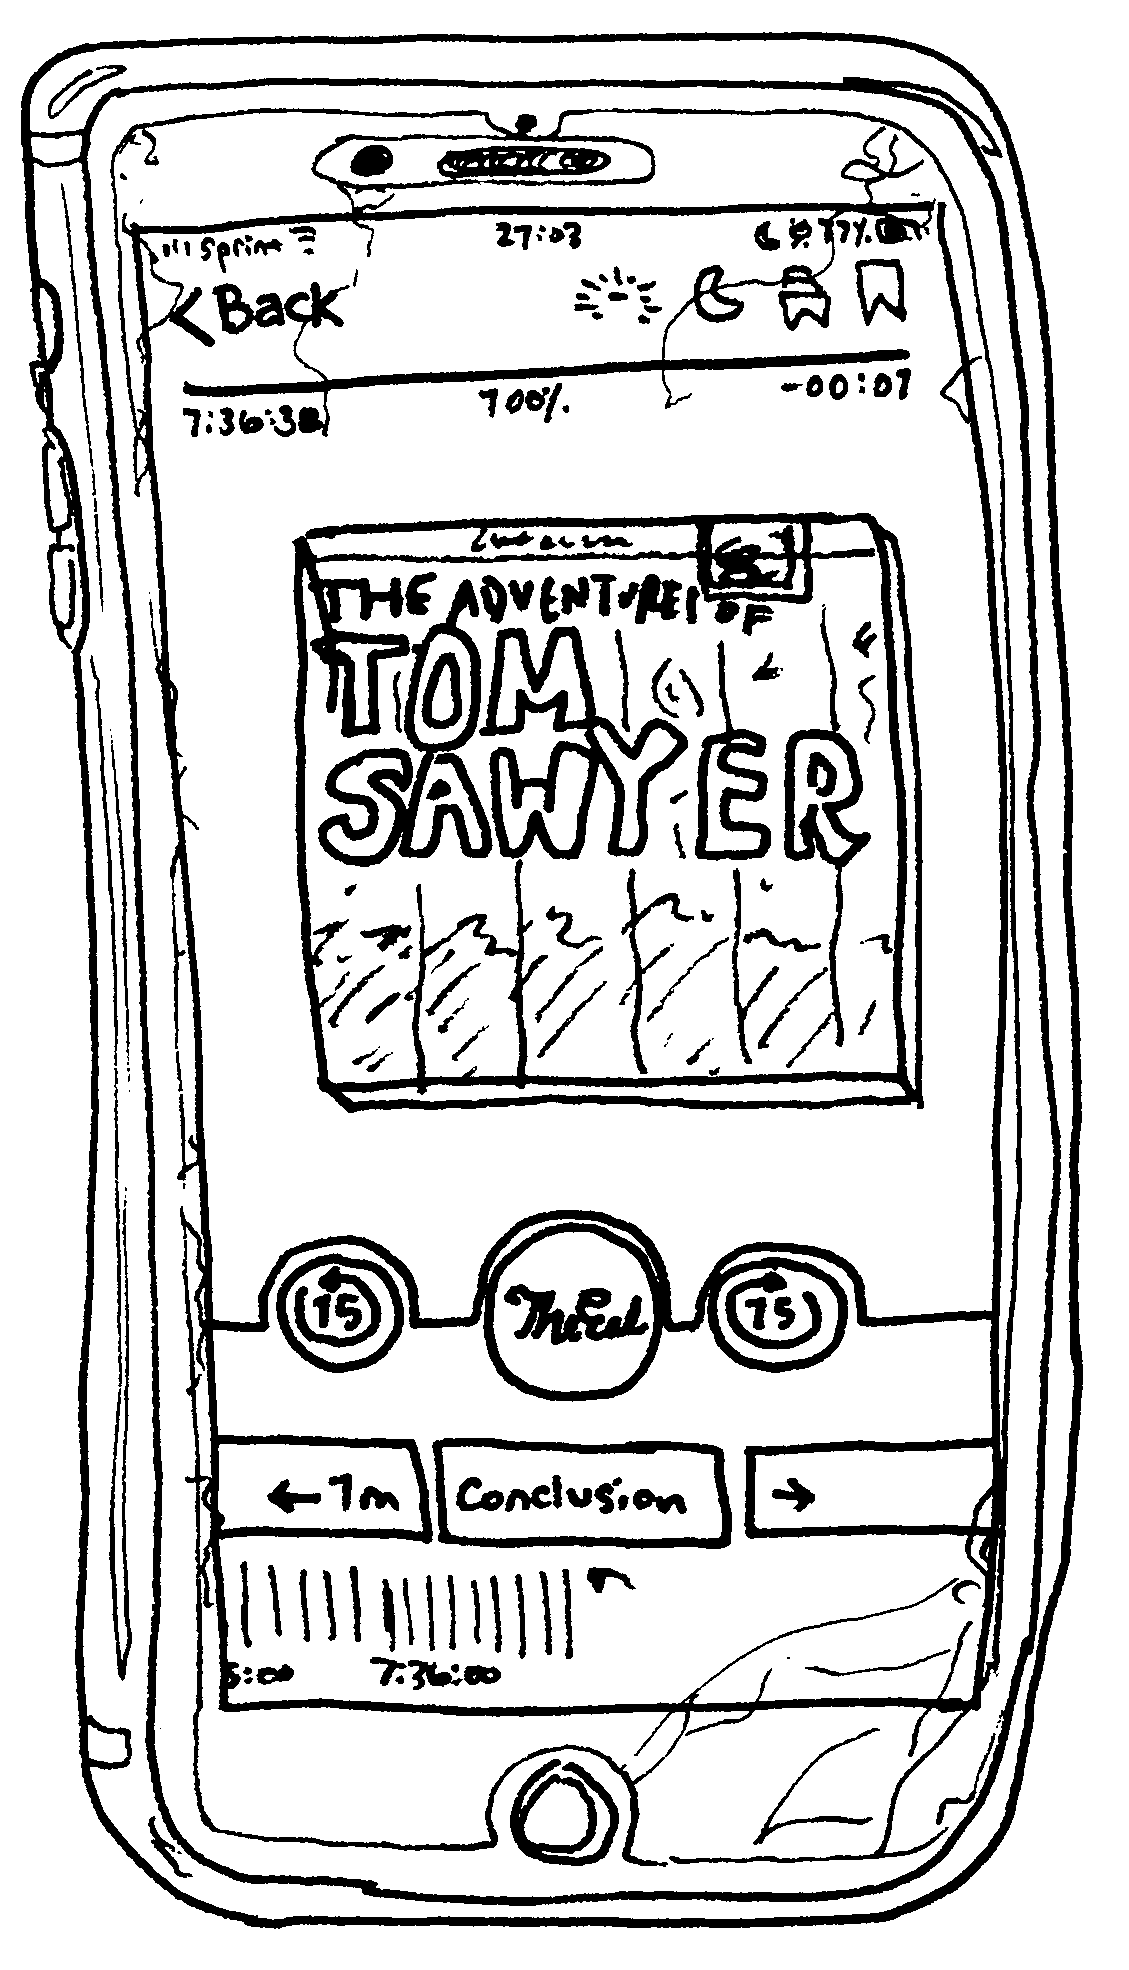 Sprint 27:03 77%
Back
7:36:38 100% -00:01
THE ADVENTURES OF
TOM
SAWYER
15 The End 15
← 1m Conclusion →
5:00 7:36:00